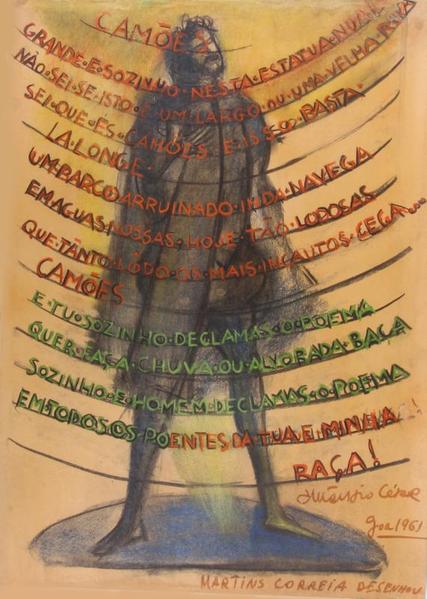 CAMÕES
GRANDE·E·SOZINHO·NESTA·ESTATUA·NUA
NÃO·SEI·SE·ISTO·É·UM·LARGO·OU·UMA·VELHA·RUA
SEI·QUE·ÉS·CAMÕES·E·ISSO·BASTA·
LA·LONGE·
UM·BARCO·ARRUINADO·INDA·NAVEGA
EM·AGUAS·NOSSAS·HOJE·TÃO·LODOSAS
QUE·TÂNTO·LÔDO·OS·MAIS·INCAUTOS·CEGA...
CAMÕES
E·TU·SOZINHO·DECLAMAS·O·POEMA
QUER·FAÇA·CHUVA·OU·ALVORADA·BAÇA
SOZINHO·E·HOMEM·DECLAMAS·O·POEMA
EM·TODOS·OS·POENTES·DA·TUA·E·MINHA
RAÇA!
César
Goa/1961
MARTINS CORREIA DESENHOU